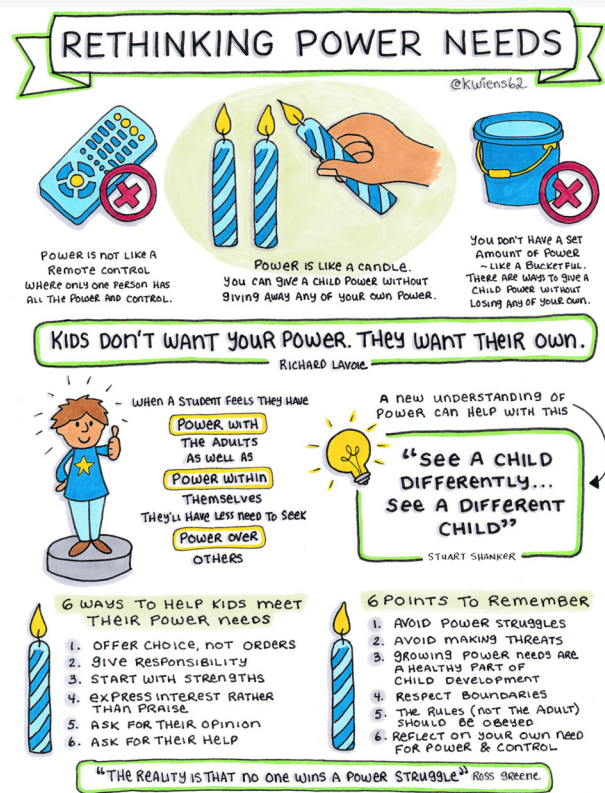 RETHINKING POWER NEEDS
@kwiens62
POWER IS NOT LIKE A
REMOTE CONTROL
WHERE ONLY ONE PERSON HAS
ALL THE POWER AND CONTROL.
POWER IS LIKE A CANDLE.
YOU CAN GIVE A CHILD POWER WITHOUT
GIVING AWAY ANY OF YOUR OWN POWER.
YOU DON'T HAVE A SET
AMOUNT OF POWER
~ LIKE A BUCKETFUL.
THERE ARE WAYS TO GIVE A
CHILD POWER WITHOUT
LOSING ANY OF YOUR OWN.
KIDS DON'T WANT YOUR POWER. THEY WANT THEIR OWN.
RICHARD LAVOIE
WHEN A STUDENT FEELS THEY HAVE
POWER WITH
THE ADULTS
AS WELL AS
POWER WITHIN
THEMSELVES
THEY'LL HAVE LESS NEED TO SEEK
POWER OVER
OTHERS
A NEW UNDERSTANDING OF
POWER CAN HELP WITH THIS
"SEE A CHILD
DIFFERENTLY...
SEE A DIFFERENT
CHILD"
STUART SHANKER
6 WAYS TO HELP KIDS MEET
THEIR POWER NEEDS
1. OFFER CHOICE, NOT ORDERS
2. GIVE RESPONSIBILITY
3. START WITH STRENGTHS
4. EXPRESS INTEREST RATHER
THAN PRAISE
5. ASK FOR THEIR OPINION
6. ASK FOR THEIR HELP
6 POINTS TO REMEMBER
1. AVOID POWER STRUGGLES
2. AVOID MAKING THREATS
3. GROWING POWER NEEDS ARE
A HEALTHY PART OF
CHILD DEVELOPMENT
4. RESPECT BOUNDARIES
5. THE RULES (NOT THE ADULT)
SHOULD BE OBEYED
6. REFLECT ON YOUR OWN NEED
FOR POWER & CONTROL
"THE REALITY IS THAT NO ONE WINS A POWER STRUGGLE" ROSS GREENE